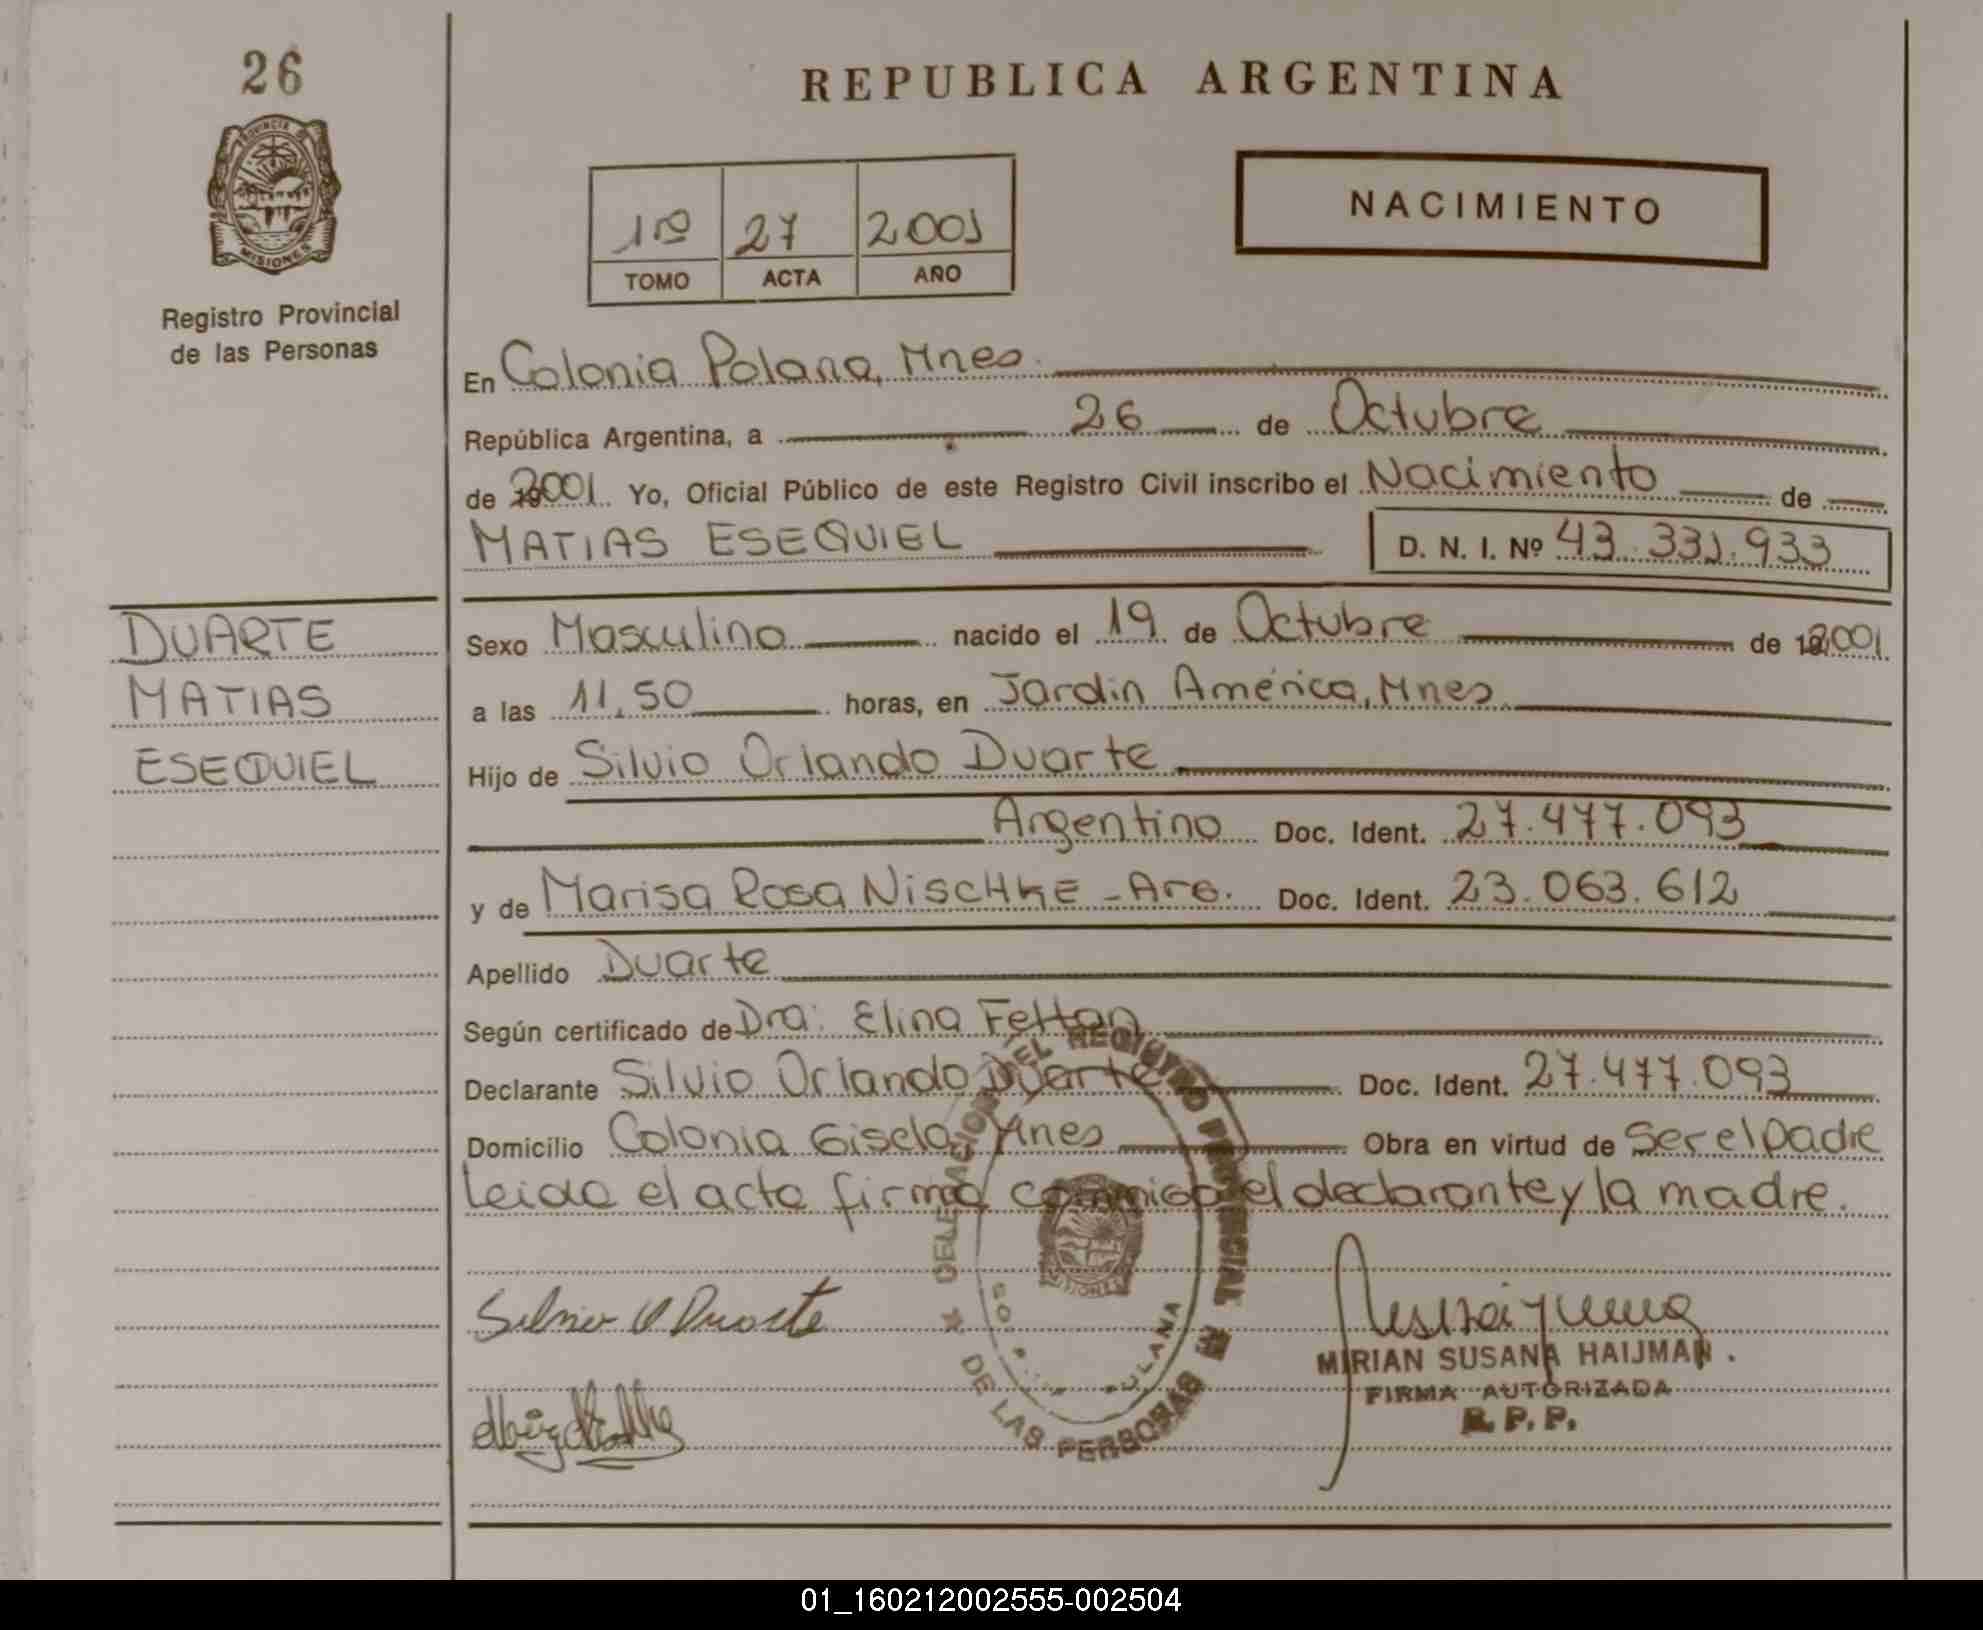 26
PROVINCIA DE
MISIONES
Registro Provincial
de las Personas
REPUBLICA ARGENTINA
1ro 27 2001
TOMO ACTA AÑO
NACIMIENTO
En Colonia Polana, Mnes.
República Argentina, a 26 de Octubre
de 2001. Yo, Oficial Público de este Registro Civil inscribo el Nacimiento de
MATIAS ESEQUIEL D. N. I. Nº 43.331.933
DUARTE
MATIAS
ESEQUIEL
Sexo Masculino nacido el 19 de Octubre de 2001.
a las 11,50 horas, en Jardin América, Mnes
Hijo de Silvio Orlando Duarte
Argentino Doc. Ident. 27.477.093
y de Marisa Rosa NiscHKE - ArG. Doc. Ident. 23.063.612
Apellido Duarte
Según certificado de Dra: Elina
Declarante Silvio Orlando Duarte Doc. Ident. 27.477.093
Domicilio Colonia Gisela, Mnes Obra en virtud de Ser el Padre
Leida el acta firma conmigo el declarante y la madre.
DELEGACION DEL REGISTRO PROVINCIAL DE LAS PERSONAS
MISIONES
POLANA
Silvio O Duarte
MIRIAN SUSANA HAIJMAN.
FIRMA AUTORIZADA
R. P. P.
01_160212002555-002504